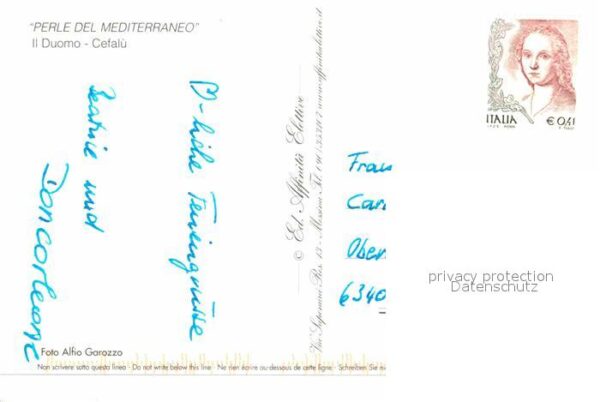 "PERLE DEL MEDITERRANEO"
Il Duomo - Cefalù
♡-liche Feriengrüsse
Beatrice und
Doncorleone
Foto Alfio Garozzo
Non scrivere sotto questa linea - Do not write below this line - Ne rien écrire au-dessous de cette ligne - Schreiben Sie
© Ed. Affinità Elettive
Messina Tel.
www.affinitaelettive.it
ITALIA
€ 0,41
Frau
Ober
6340
privacy protection
Datenschutz